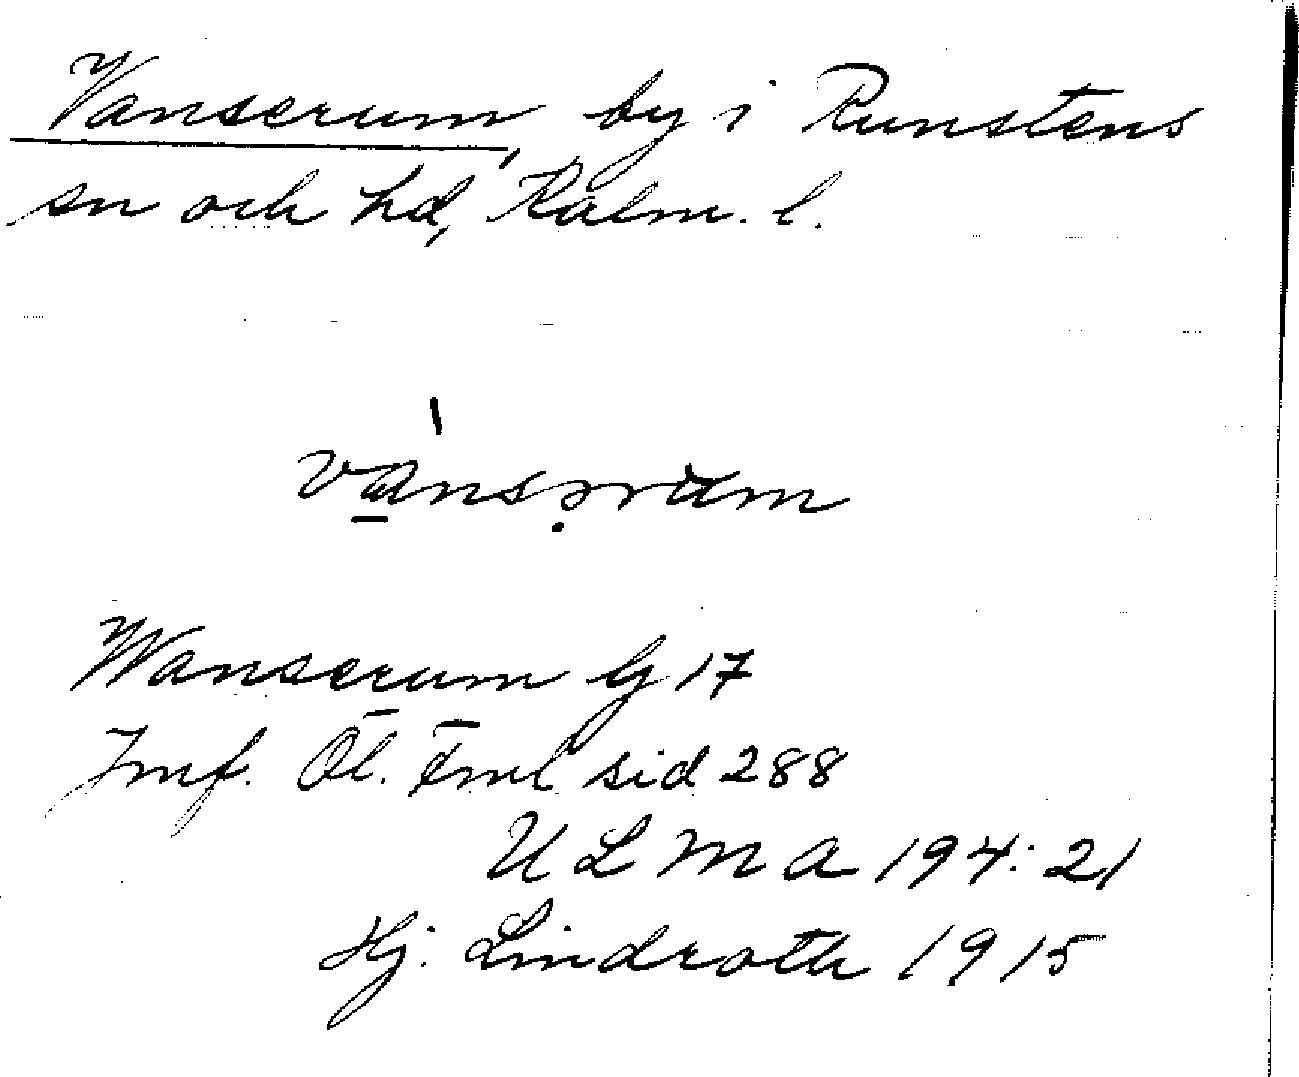 Vanserum, by i Runstens
sn och hd, Kalm. l.
vansərum
Wanserum G 17
Jmf. Öl. Fml sid 288
ULMA 194:21
Hj. Lindroth 1915